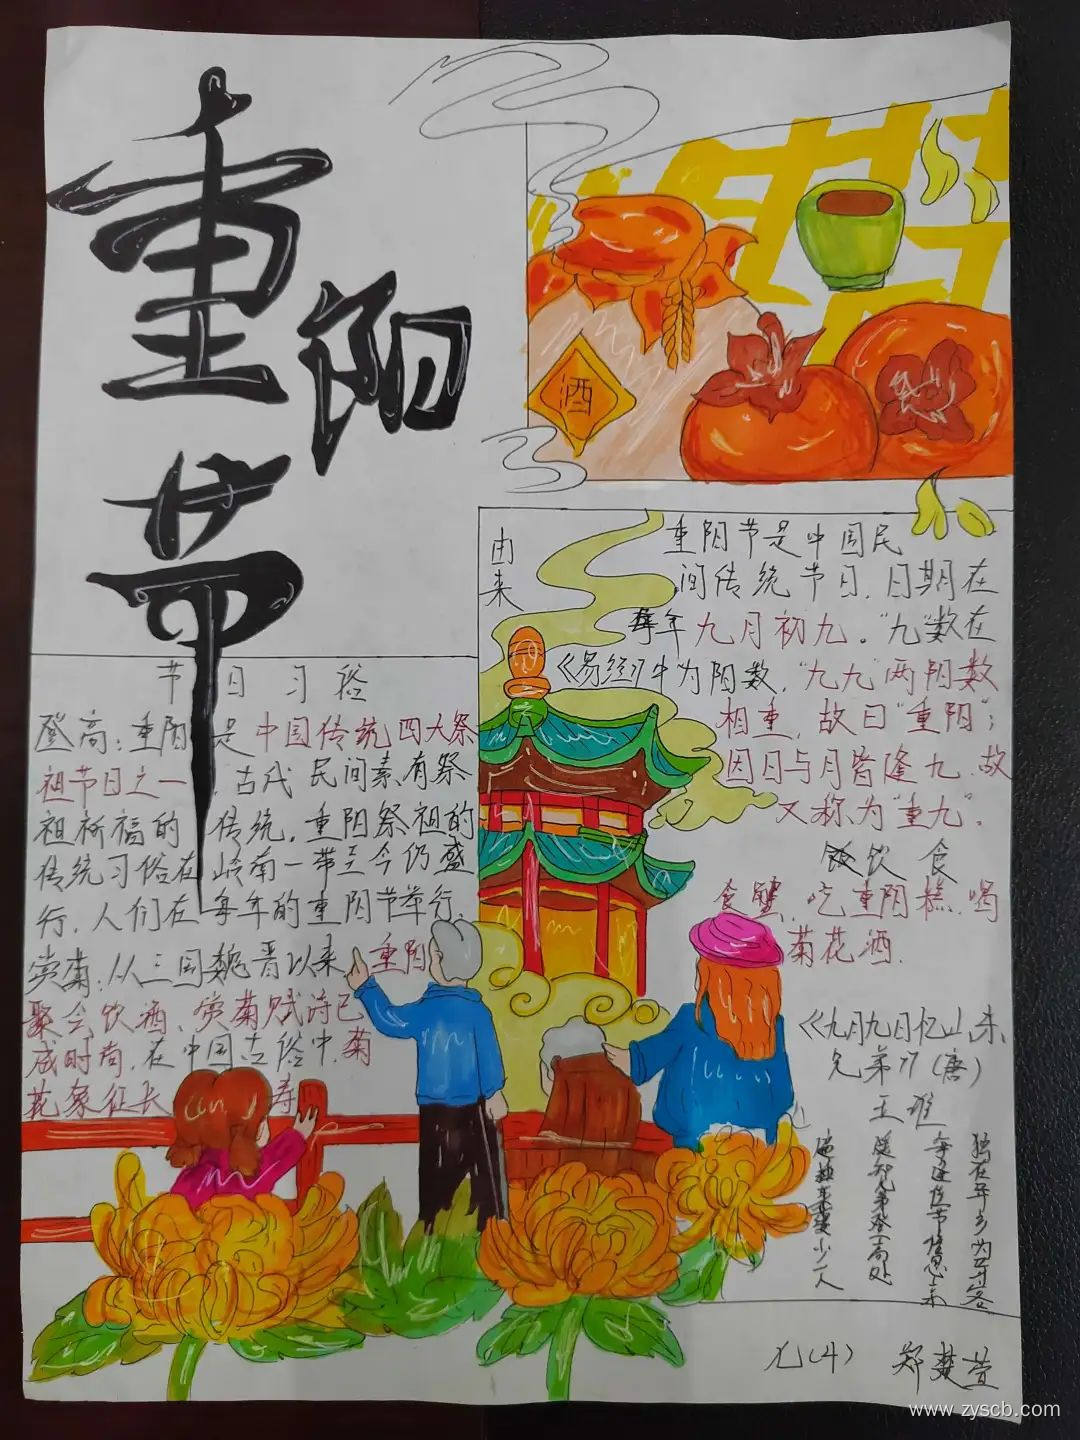 重阳节
酒
由来
重阳节是中国民
间传统节日,日期在
每年九月初九。“九”数在
《易经》中为阳数,“九九”两阳数
相重,故曰“重阳”;
因日与月皆逢九,故
又称为“重九”。
饮食
食蟹,吃重阳糕,喝
菊花酒.
《九月九日忆山东
兄弟》(唐)
王维
独在异乡为异客
每逢佳节倍思亲
遥知兄弟登高处
遍插茱萸少一人
节日习俗
登高:重阳是中国传统四大祭
祖节日之一,古代民间素有祭
祖祈福的传统,重阳祭祖的
传统习俗在岭南一带至今仍盛
行,人们在每年的重阳节举行.
赏菊:从三国魏晋以来,重阳
聚会饮酒、赏菊赋诗已
成时尚,在中国古俗中,菊
花象征长寿
九(4) 郑楚萱
www.zyscb.com